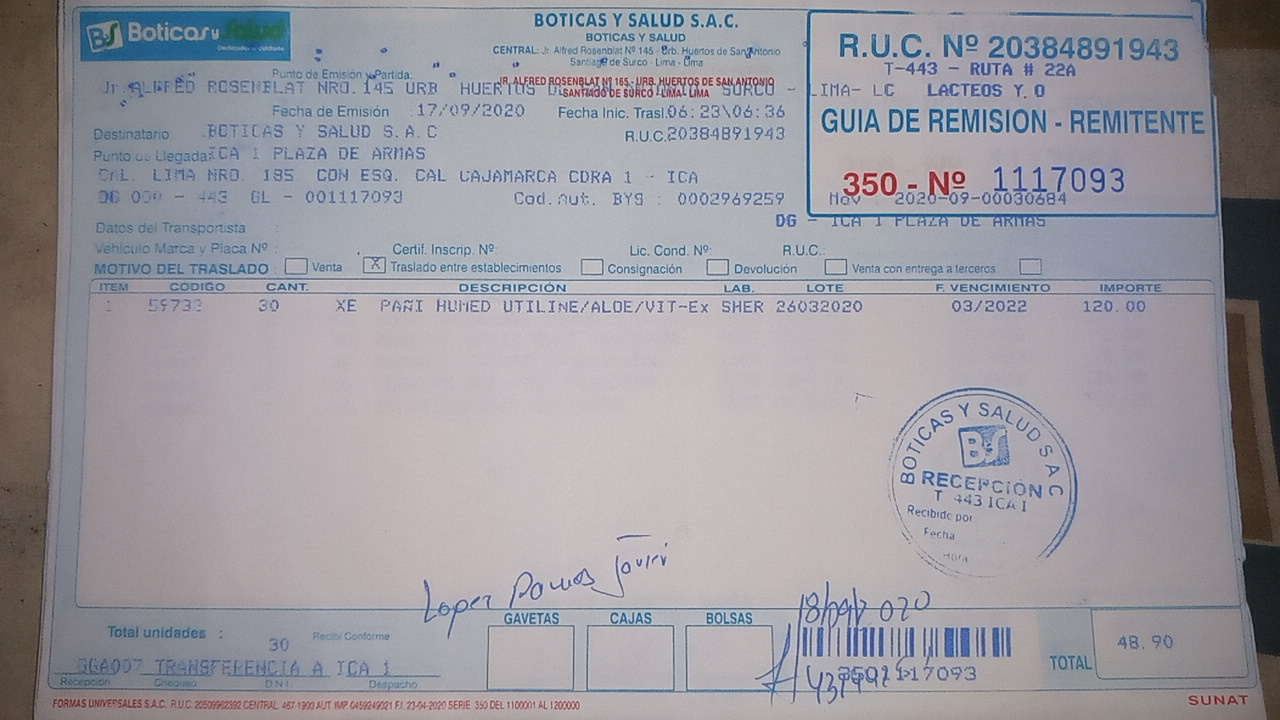 BS Boticas y Salud
BOTICAS Y SALUD S.A.C.
BOTICAS Y SALUD
CENTRAL: Jr. Alfred Rosenblat Nº 145 - Urb. Huertos de San Antonio
Santiago de Surco - Lima - Lima
JR. ALFRED ROSENBLAT Nº 165 - URB. HUERTOS DE SAN ANTONIO
SANTIAGO DE SURCO - LIMA - LIMA
R.U.C. Nº 20384891943
T-443 - RUTA # 22A
Punto de Emisión y Partida:
Jr. ALFRED ROSENBLAT NRO.145 URB HUERTOS SURCO - LIMA- LC LACTEOS Y O
Fecha de Emisión 17/09/2020 Fecha Inic. Trasl. 06:23\06:36
GUIA DE REMISION - REMITENTE
Destinatario BOTICAS Y SALUD S.A.C R.U.C. 20384891943
Punto de Llegada: ICA 1 PLAZA DE ARMAS
350 - Nº 1117093
CAL. LIMA NRO. 195 CON ESQ. CAL CAJAMARCA CDRA 1 - ICA
DG 000 - 443 GL - 001117093 Cod.Aut. BYS : 0002969259 Mov 2020-09-00030684
DG - ICA 1 PLAZA DE ARMAS
Datos del Transportista :
Vehículo Marca y Placa Nº : Certif. Inscrip. Nº: Lic. Cond. Nº: R.U.C.:
MOTIVO DEL TRASLADO Venta X Traslado entre establecimientos Consignación Devolución Venta con entrega a terceros
ITEM CÓDIGO CANT. DESCRIPCIÓN LAB. LOTE F. VENCIMIENTO IMPORTE
1 59733 30 XE PAÑI HUMED UTILINE/ALOE/VIT-Ex SHER 26032020 03/2022 120.00
BOTICAS Y SALUD S A C
BS
RECEPCIÓN
T 443 ICA I
Recibido por
Fecha
Hora
Lopez Ramos Javier
GAVETAS CAJAS BOLSAS
Total unidades : 30 Recibí Conforme
TOTAL 48.90
3501117093
OGA007 TRANSFERENCIA A ICA 1
Recepción Chequeo D.N.I. Despacho
FORMAS UNIVERSALES S.A.C. R.U.C. 20509962392 CENTRAL: 467-1900 AUT. IMP. 0459249021 F.I. 23-04-2020 SERIE: 350 DEL 1100001 AL 1200000
SUNAT